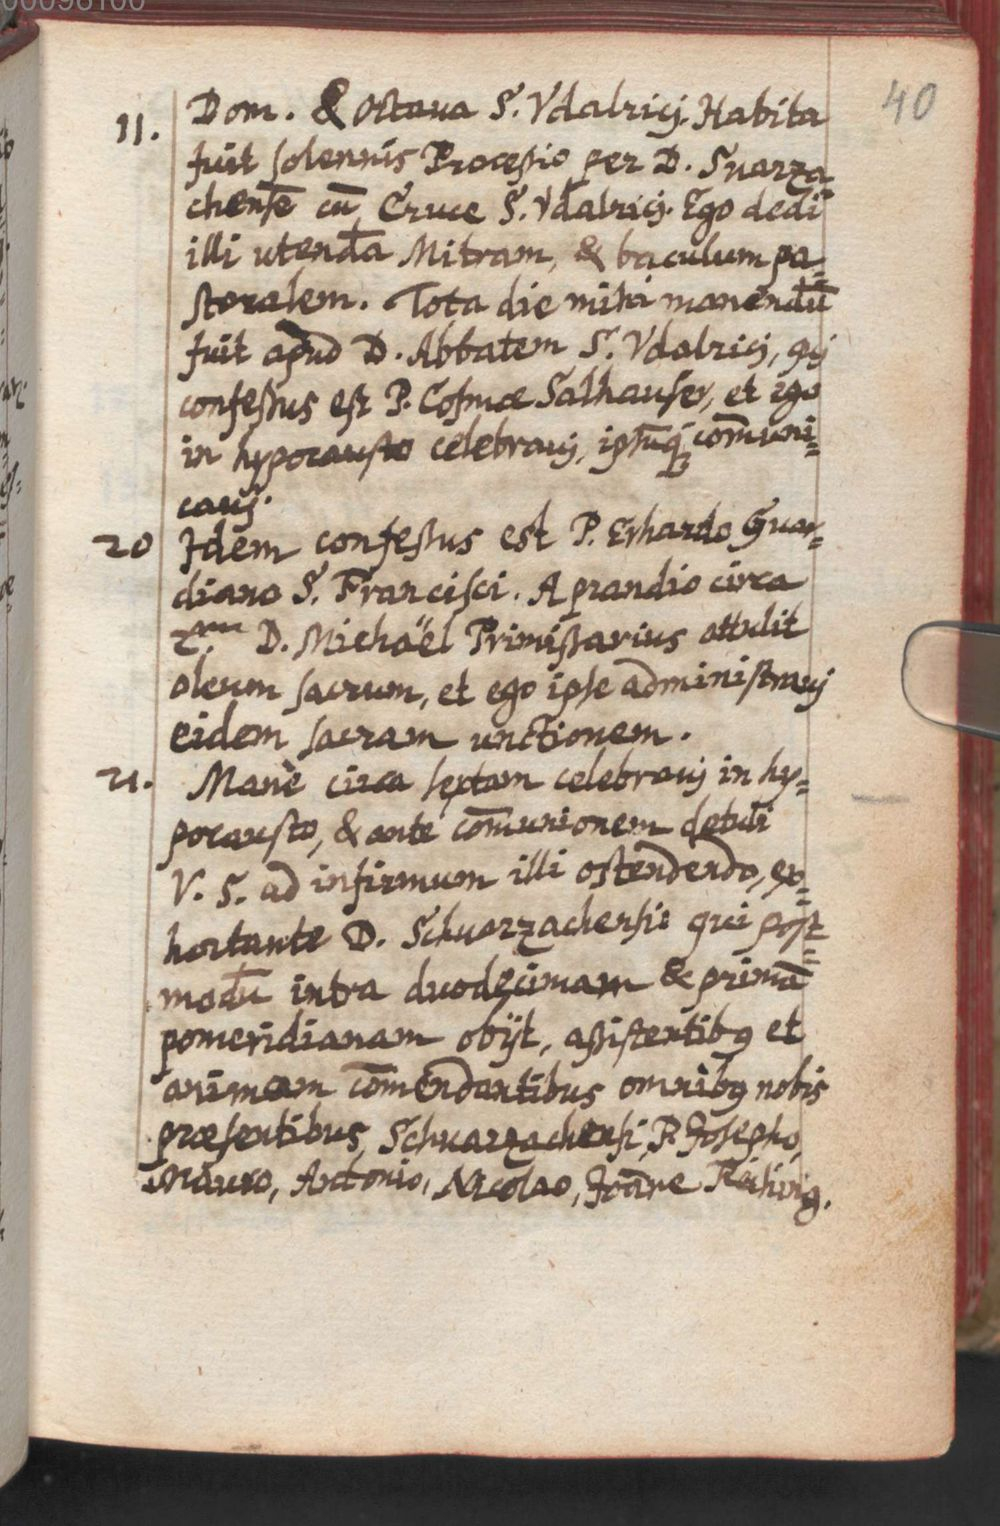 00096100
40
11. Dom. & Octaua S. Vdalricj. Habita
fuit solennis Processio per D. Suarza-
chensē cū Cruce S. Vdalricj. Ego dedi
illi utendā Mitram, & baculum pa-
storalem. Tota die mihi manendū
fuit apud D. Abbatem S. Vdalricj, qj
confessus est P. Cosmæ Salhauser, et ego
in hypocausto celebrauj, ipsūq; com̄uni=
cauj.
20 Idem confessus est P. Erhardo Guar=
diano S. Francisci. A prandio circa
2.am D. Michaël Primissarius attulit
oleum sacrum, et ego ipse administrauj
eidem sacram unctionem.
21. Manè circa sextam celebrauj in hy=
pocausto, & ante com̄unionem detuli
V. S. ad infirmum illi ostendendo, ex=
hortante D. Schuarzachensi qui post=
modū intra duodecimam & primā
pomeridianam obijt, assistentibꝯ et
animam com̄endantibus omnibꝯ nobis
præsentibus, Schuarzachensi, P. Josepho,
Mauro, Antonio, Nicolao, Joāne Reihing.